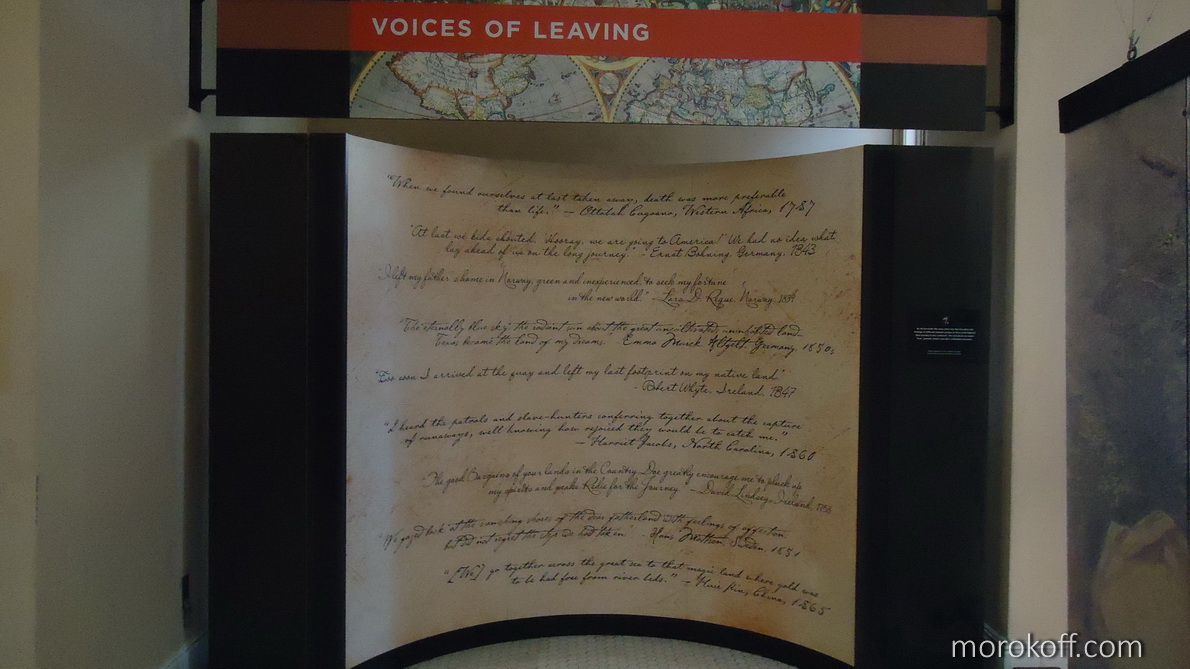 VOICES OF LEAVING
"When we found ourselves at last taken away, death was more preferable
than life." – Ottobah Cugoano, Western Africa, 1787
"At last we kids shouted, 'Hooray, we are going to America!' We had no idea what
lay ahead of us on the long journey." - Ernst Bohning, Germany, 1843
"I left my father's home in Norway, green and inexperienced, to seek my fortune
in the new world." - D. Reque, Norway,
"The eternally blue sky, the radiant sun about the great uncultivated, uninhabited land
Texas became the land of my dreams. Emma Murck Altgelt, Germany, 1850s
soon I arrived at the quay and left my last footprint on my native land"
- Robert Whyte, Ireland, 1847
"I heard the patrols and slave-hunters conferring together about the capture
of runaways, well knowing how rejoiced they would be to catch me."
– Harriet Jacobs, North Carolina, 1860
"The good Bargains of your lands in the Country Doe greatly encourage me to pluck up
my spirits and make Redie for the Journey - David Lindsey, Ireland,
"We gazed back at the vanishing shores of the dear fatherland with feelings of affection,
but did not regret the step we had taken." - Hans Mattson, Sweden, 1851
"[We] go together across the great sea to that magic land where gold was
to be had free from river beds." – Huie Kin, China, 1865
morokoff.com